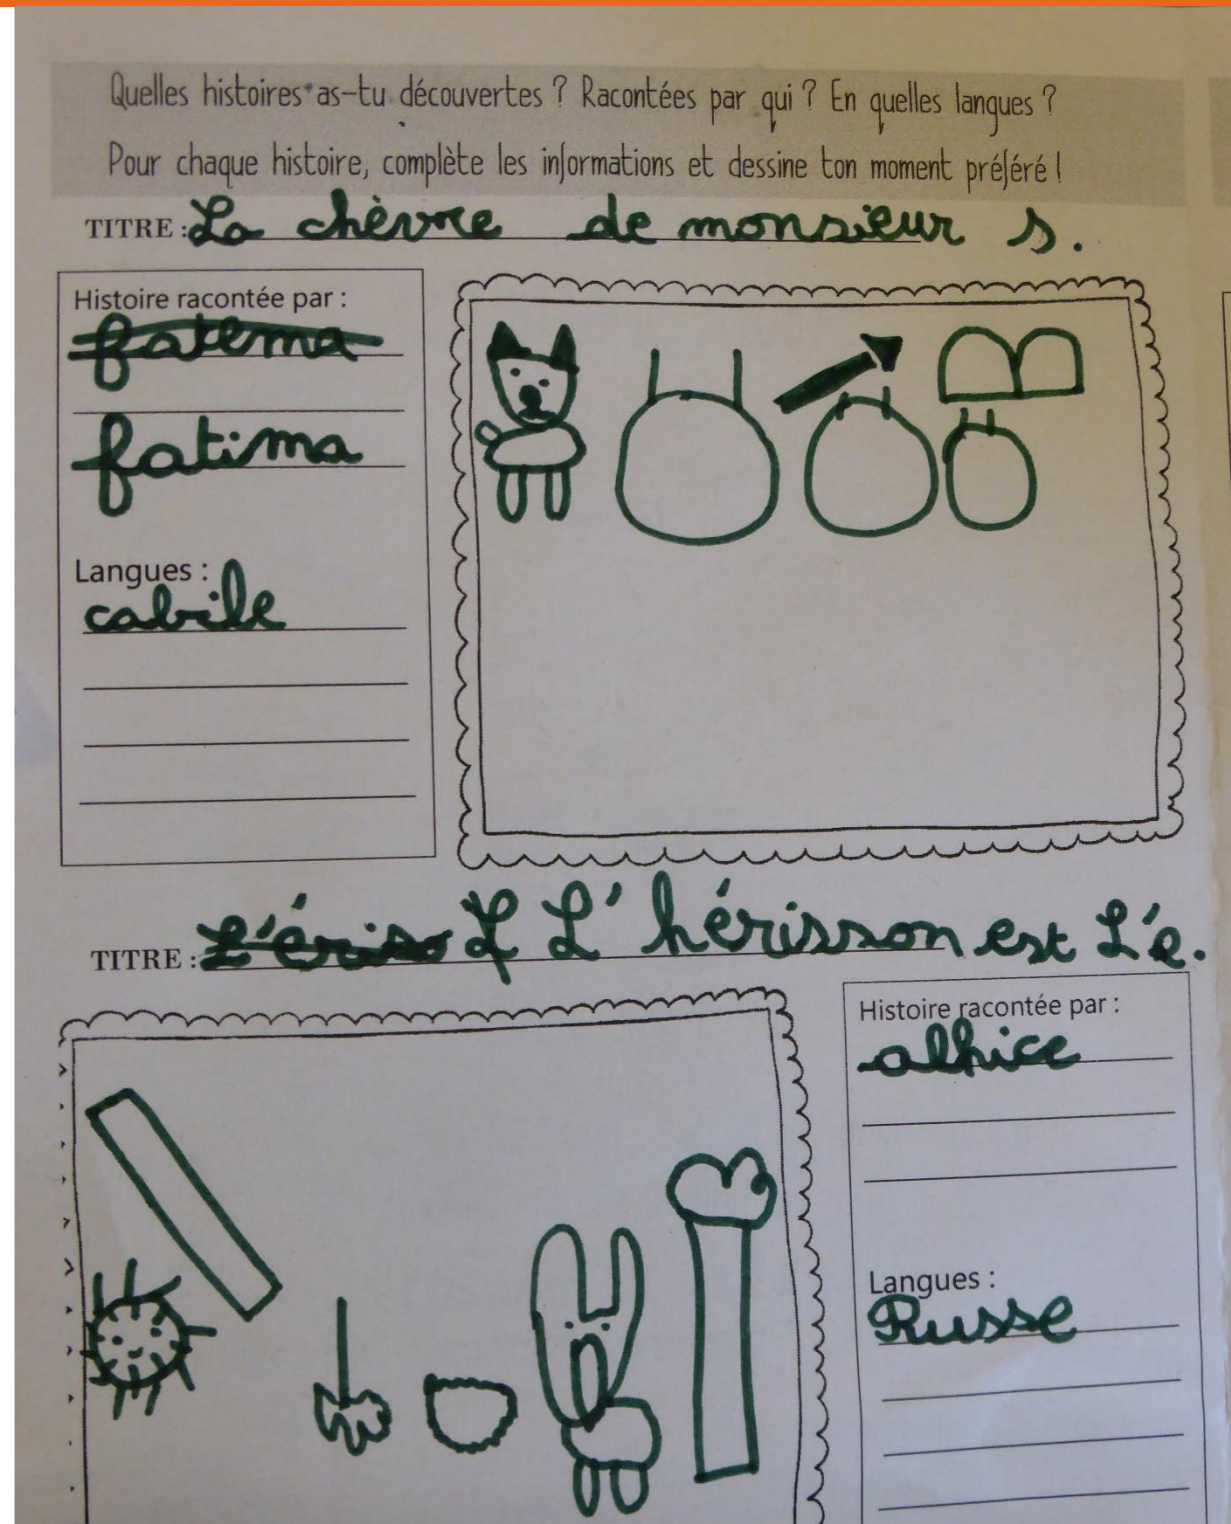 Quelles histoires as-tu découvertes ? Racontées par qui ? En quelles langues ?
Pour chaque histoire, complète les informations et dessine ton moment préféré !
TITRE : La chèvre de monsieur s.
Histoire racontée par :
fatema
fatima
Langues :
cabile
TITRE : L'ériso L L' hérisson est L'e.
Histoire racontée par :
alhice
Langues :
Russe